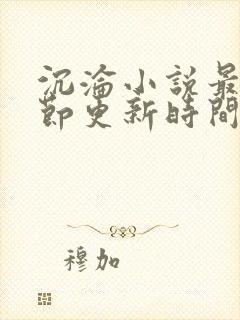 沉淪小說最
節更新時間
穆加